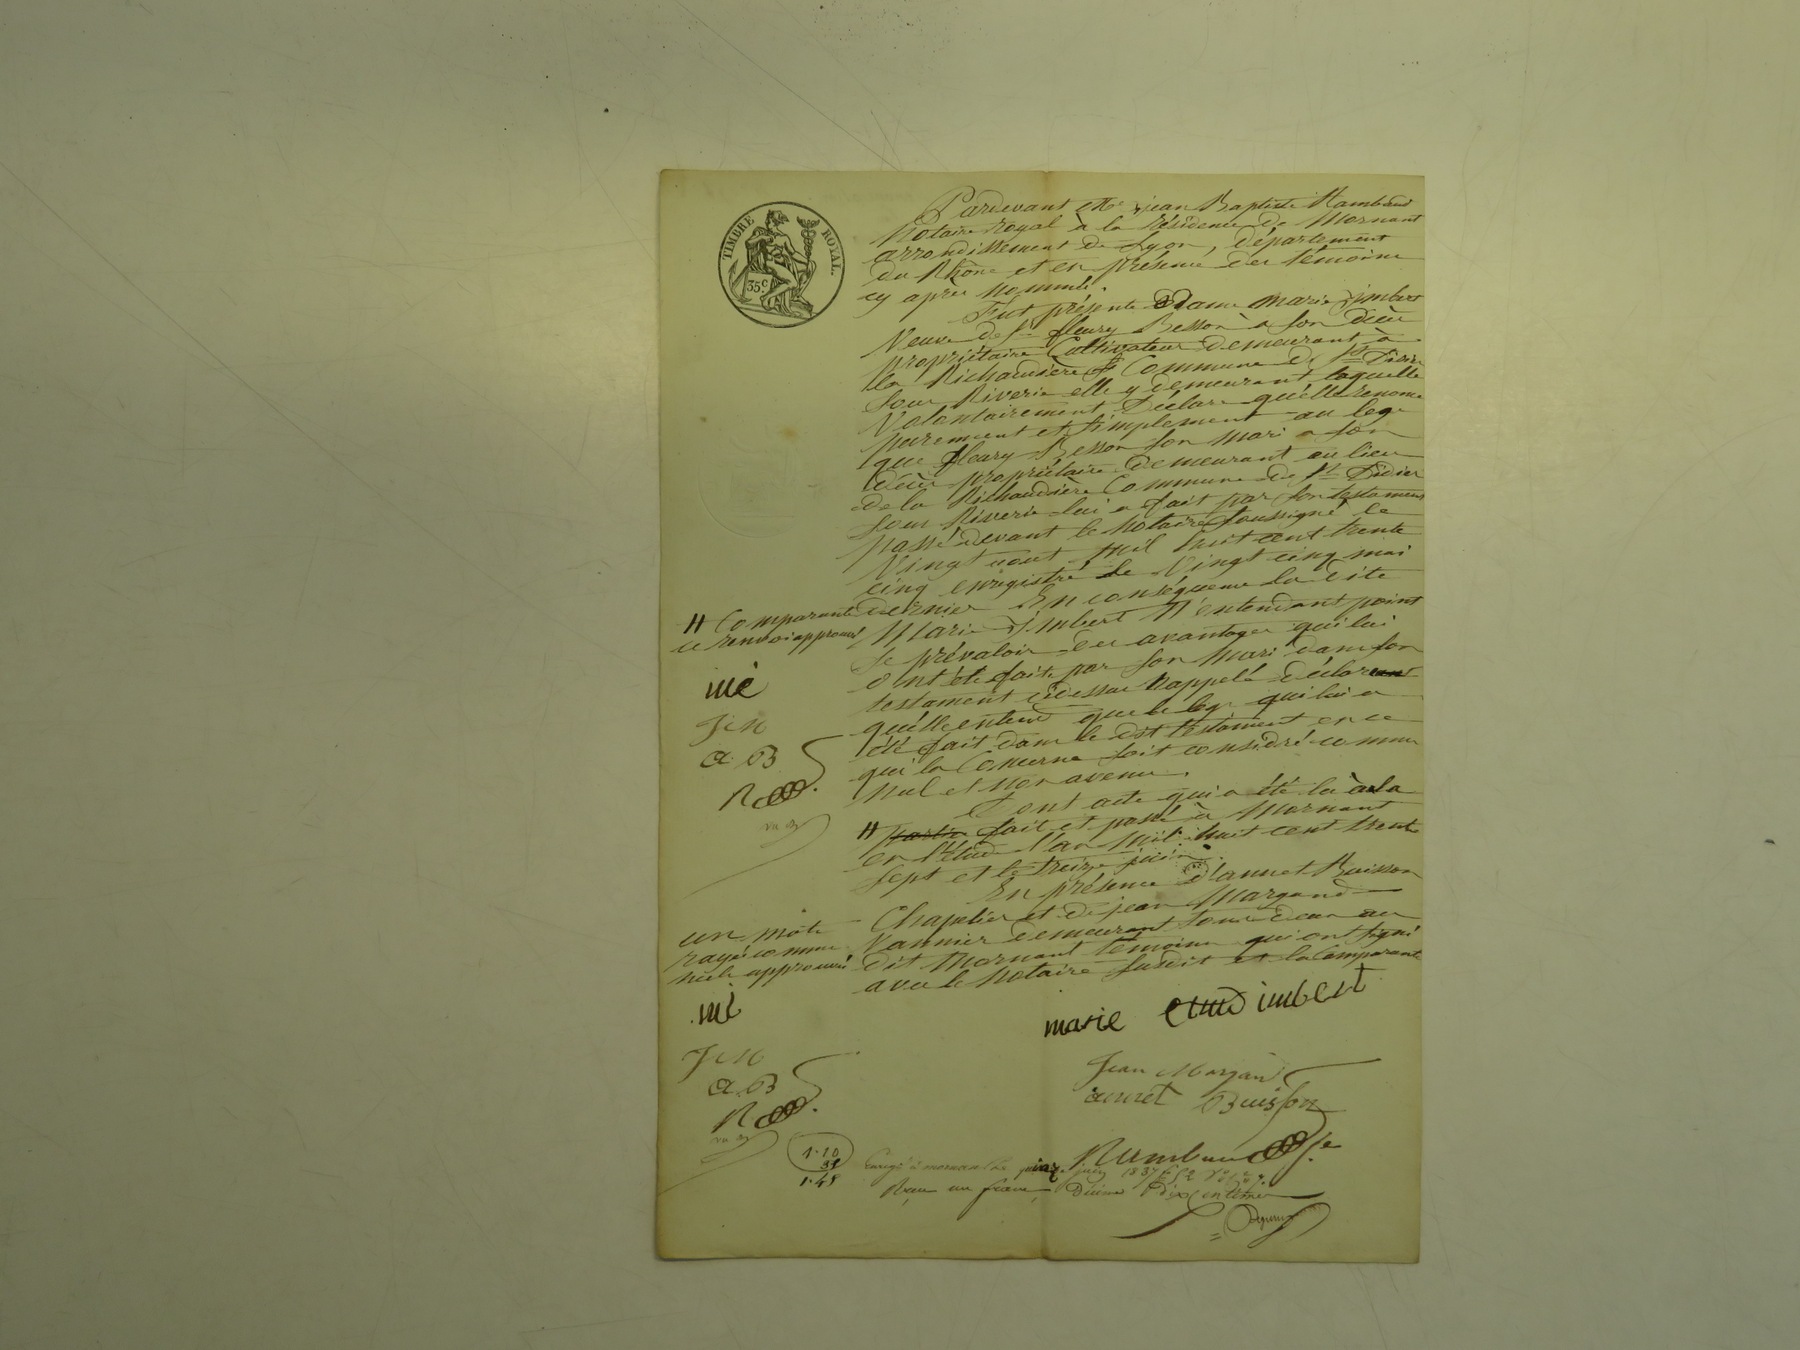 TIMBRE ROYAL.
35c
Pardevant Me jean Baptiste Rambaud
Notaire royal à la résidence de Mornant
arrondissement de Lyon, département
du Rhône et en présence des témoins
cy après nommés.
Fut présente Dame Marie Imbert
Veuve de Sr fleury Besson à son décès
propriétaire Cultivateur demeurant à
la Richaudière Commune de St Didier
sous Riverie elle y demeurant laquelle
Volontairement Déclare quelle renonce
purement et simplement au legs
que fleury Besson son mari a son
décès propriétaire demeurant au lieu
de la Richaudière Commune de St Didier
sous Riverie lui a fait par son testament
passé devant le Notaire soussigné le
Vingt aout Mil huit cent trente
cinq enregistré le Vingt cinq mai
dernier En conséquence la dite
Marie Imbert N'entendant point
se prévaloir des avantages qui lui
ont été faits par son mari dans son
testament cidessus Rappelé déclare
qu'elle entend que le legs qui lui a
été fait dans le dit testament en ce
qui la Concerne soit considéré comme
nul et non avenu.
Dont acte qui a été lu à la
// partie fait et passé à Mornant
en l'Etude l'an Mil huit cent trente
sept et le treize juin.
En présence d'annet Buisson
Chapelier et de jean Margand
Vannier demeurant tous deux au
dit Mornant témoins qui ont signé
avec le Notaire susdit et la Comparante
// Comparante
ce renvoi approuvé
mi
J M
a. B
R
un mot
rayé comme
nul approuvé
mi
J M
a. B
R
marie imbert
Jean Margand
annet Buisson
Rambaud
1.10
35
1.45
Enregé à mornant le juin 1837
Reçu un franc Décime Dix Centimes